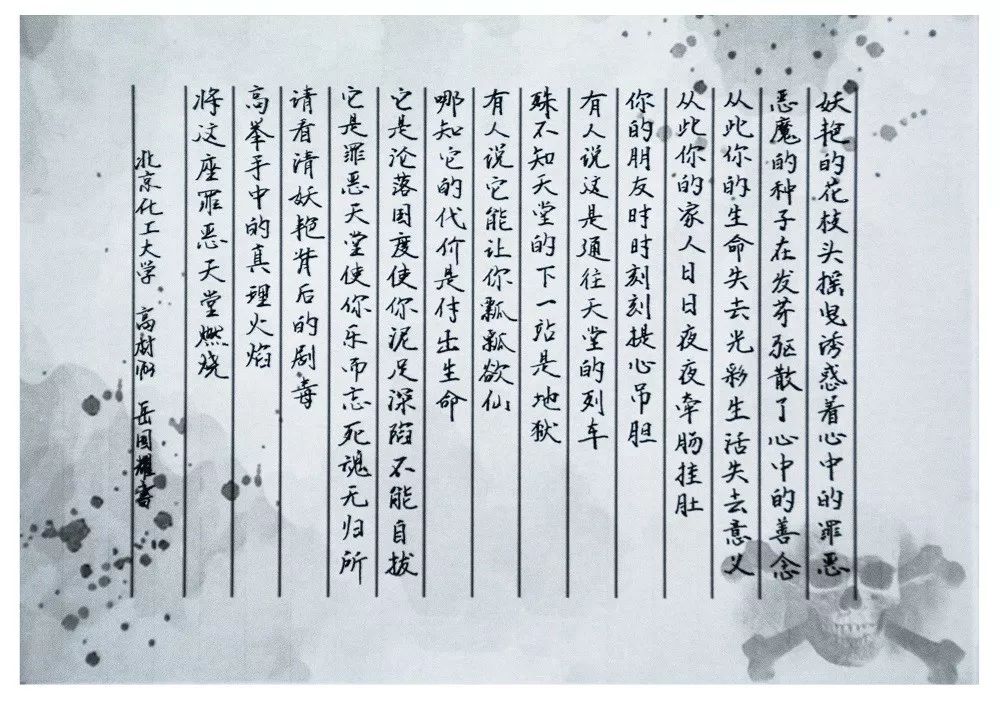 妖艳的花枝头摇曳诱惑着心中的罪恶
恶魔的种子在发芽驱散了心中的善念
从此你的生命失去光彩生活失去意义
从此你的家人日日夜夜牵肠挂肚
你的朋友时时刻刻提心吊胆
有人说这是通往天堂的列车
殊不知天堂的下一站是地狱
有人说它能让你飘飘欲仙
哪知它的代价是付出生命
它是沦落国度使你泥足深陷不能自拔
它是罪恶天堂使你乐而忘死魂无归所
请看清妖艳背后的剧毒
高举手中的真理火焰
将这座罪恶天堂燃烧
北京化工大学 高材 岳国耀书